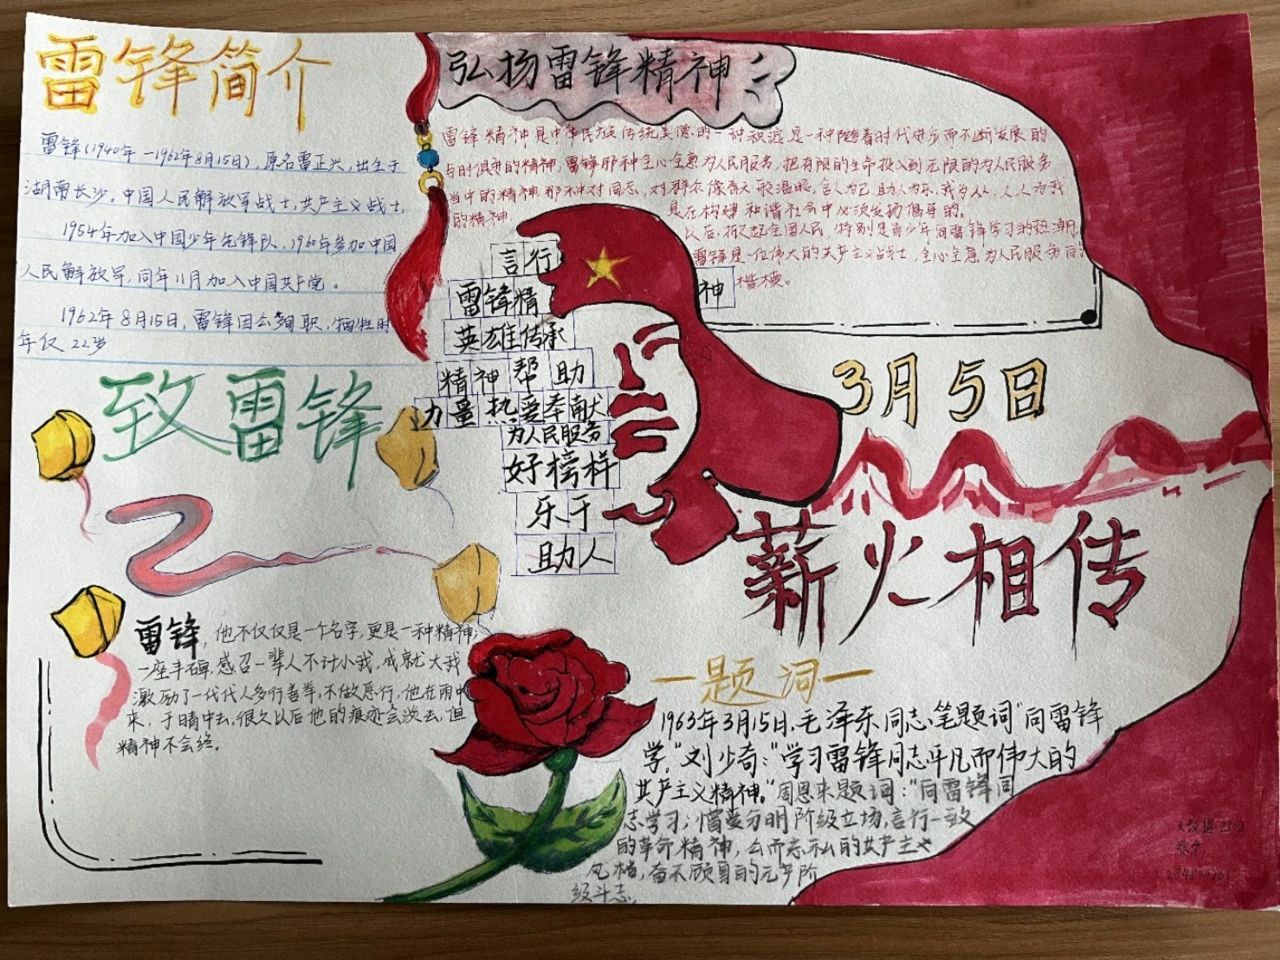 雷锋简介
雷锋(1940年-1962年8月15日),原名雷正兴,出生于
湖南长沙,中国人民解放军战士,共产主义战士,
1954年加入中国少年先锋队,1960年参加中国
人民解放军,同年11月加入中国共产党。
1962年8月15日,雷锋因公殉职,牺牲时
年仅22岁
弘扬雷锋精神
雷锋精神是中华民族传统美德的一种积淀是一种随着时代进步而不断发展的
与时俱进的精神,雷锋那种全心全意为人民服务,把有限的生命投入到无限的为人民服务
当中的精神那种对同志,对群众像春天般温暖,舍人为己,助人为乐,我为人人,人人为我
的精神。是在构建和谐社会中必须发扬倡导的。
以后,掀起全国人民,特别是青少年向雷锋学习的热潮
雷锋是一位伟大的共产主义战士,全心全意为人民服务的
楷模。
言行
雷锋精神
英雄传承
精神帮助
力量热爱奉献
为人民服务
好榜样
乐于
助人
3月5日
薪火相传
致雷锋
雷锋,他不仅仅是一个名字,更是一种精神;
一座丰碑,感召一辈人不计小我,成就大我
激励了一代代人多行善举,不做恶行,他在雨中
来,于晴中去,很久以后他的痕迹会淡去,但
精神不会终。
一题词一
1963年3月15日,毛泽东同志笔题词"向雷锋
学,"刘少奇:"学习雷锋同志平凡而伟大的
共产主义精神。"周恩来题词:"向雷锋同
志学习;憎爱分明阶级立场,言行一致
的革命精神,公而忘私的共产主义
风格,奋不顾身的无产阶
级斗志。